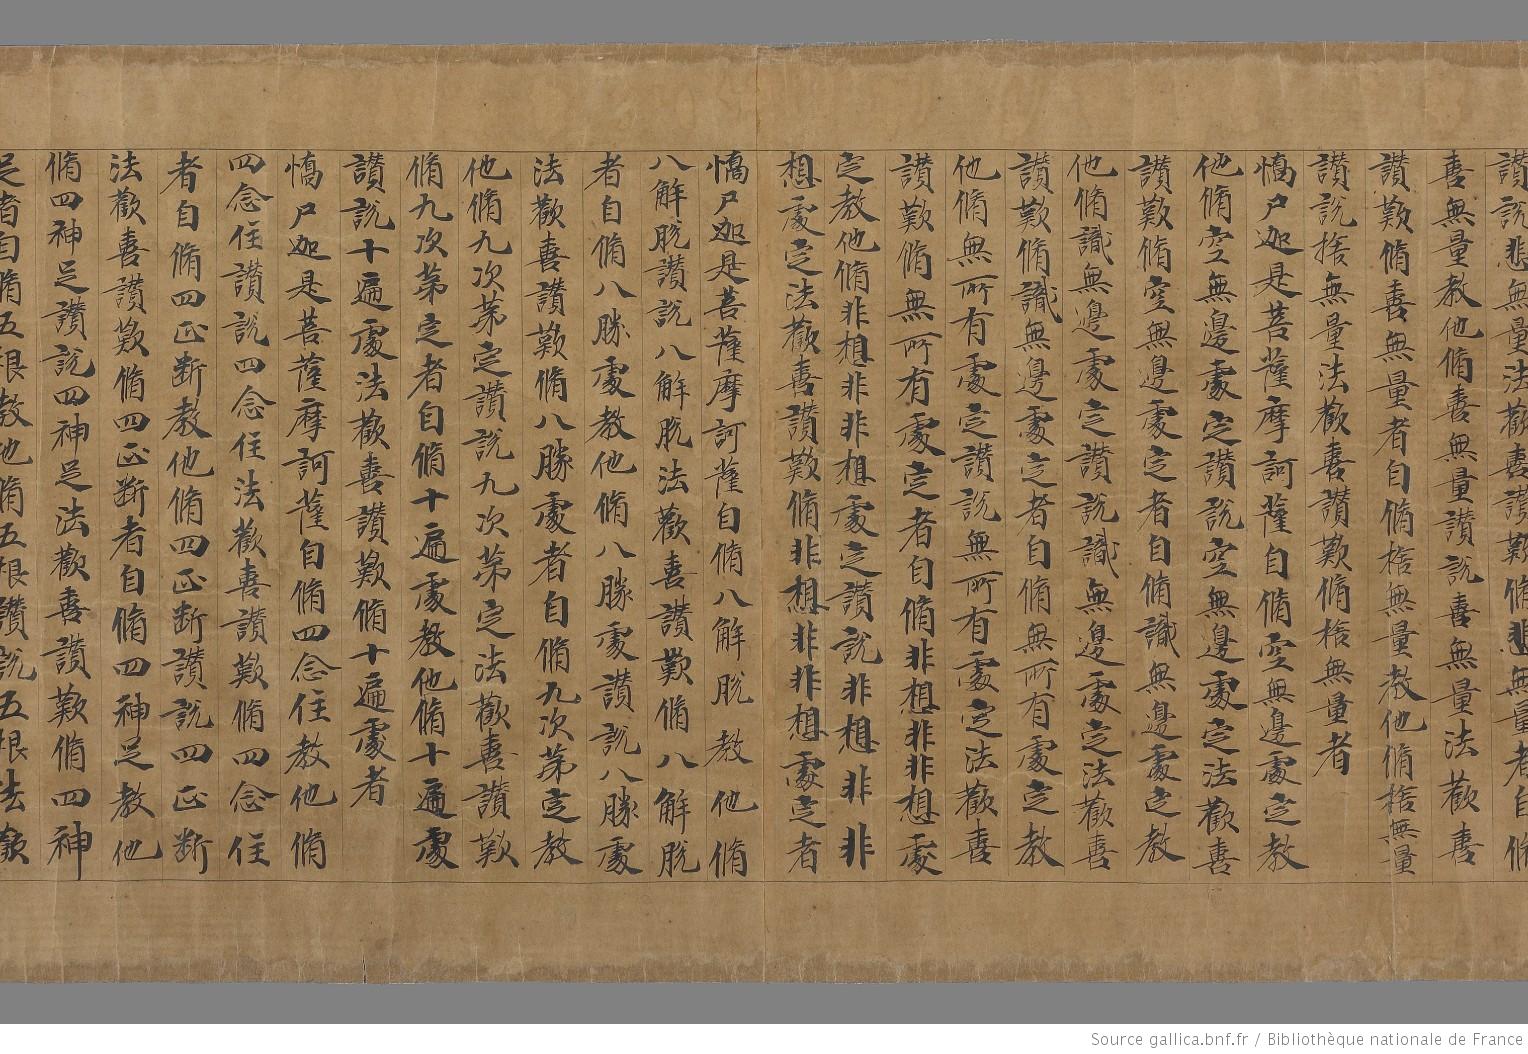 讚說悲無量法歡喜讚歎脩悲無量者自脩
喜無量教他脩喜無量讚說喜無量法歡喜
讚歎脩喜無量者自脩捨無量教他脩捨無量
讚說捨無量法歡喜讚歎脩捨無量者
憍尸迦是菩薩摩訶薩自脩空無邊處定教
他脩空無邊處定讚說空無邊處定法歡喜
讚歎脩空無邊處定者自脩識無邊處定教
他脩識無邊處定讚說識無邊處定法歡喜
讚歎脩識無邊處定者自脩無所有處定教
他脩無所有處定讚說無所有處定法歡喜
讚歎脩無所有處定者自脩非想非非想處
定教他脩非想非非想處定讚說非想非非
想處定法歡喜讚歎脩非想非非想處定者
憍尸迦是菩薩摩訶薩自脩八解脫教他脩
八解脫讚說八解脫法歡喜讚歎脩八解脫
者自脩八勝處教他脩八勝處讚說八勝處
法歡喜讚歎脩八勝處者自脩九次第定教
他脩九次第定讚說九次第定法歡喜讚歎
脩九次第定者自脩十遍處教他脩十遍處
讚說十遍處法歡喜讚歎脩十遍處者
憍尸迦是菩薩摩訶薩自脩四念住教他脩
四念住讚說四念住法歡喜讚歎脩四念住
者自脩四正断教他脩四正断讚說四正断
法歡喜讚歎脩四正断者自脩四神足教他
脩四神足讚說四神足法歡喜讚歎脩四神
足者自脩五根教他脩五根讚說五根法歡
Source gallica.bnf.fr / Bibliothèque nationale de France